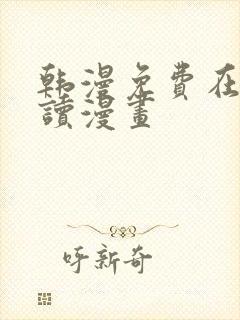 韩漫免费在
讀漫畫
呼新奇